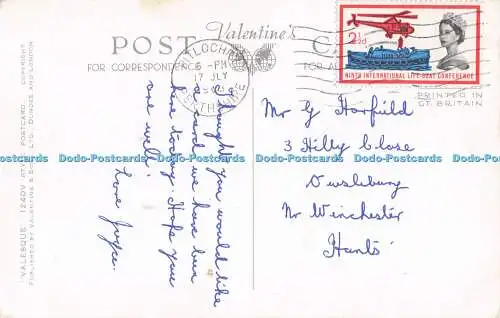 POST
Valentine's
CARD
FOR CORRESPONDENCE
LOCHAN
6 - PM
17 JLY
PERTHSHIRE
2½D
NINTH INTERNATIONAL LIFE-BOAT CONFERENCE
PRINTED IN
GT. BRITAIN
"VALESQUE"
POSTCARD
COPYRIGHT
PUBLISHED BY VALENTINE & SONS, LTD. DUNDEE AND LONDON
thought you would like
a card we have been
here today. Hope you
are well.
Love Joyce.
Mr G Horfield
3 Hilly Close
Owslebury
Nr Winchester
Hants
Dodo-Postcards Dodo-Postcards Dodo-Postcards Dodo-Postcards Dodo-Postcards Dodo-Postcards